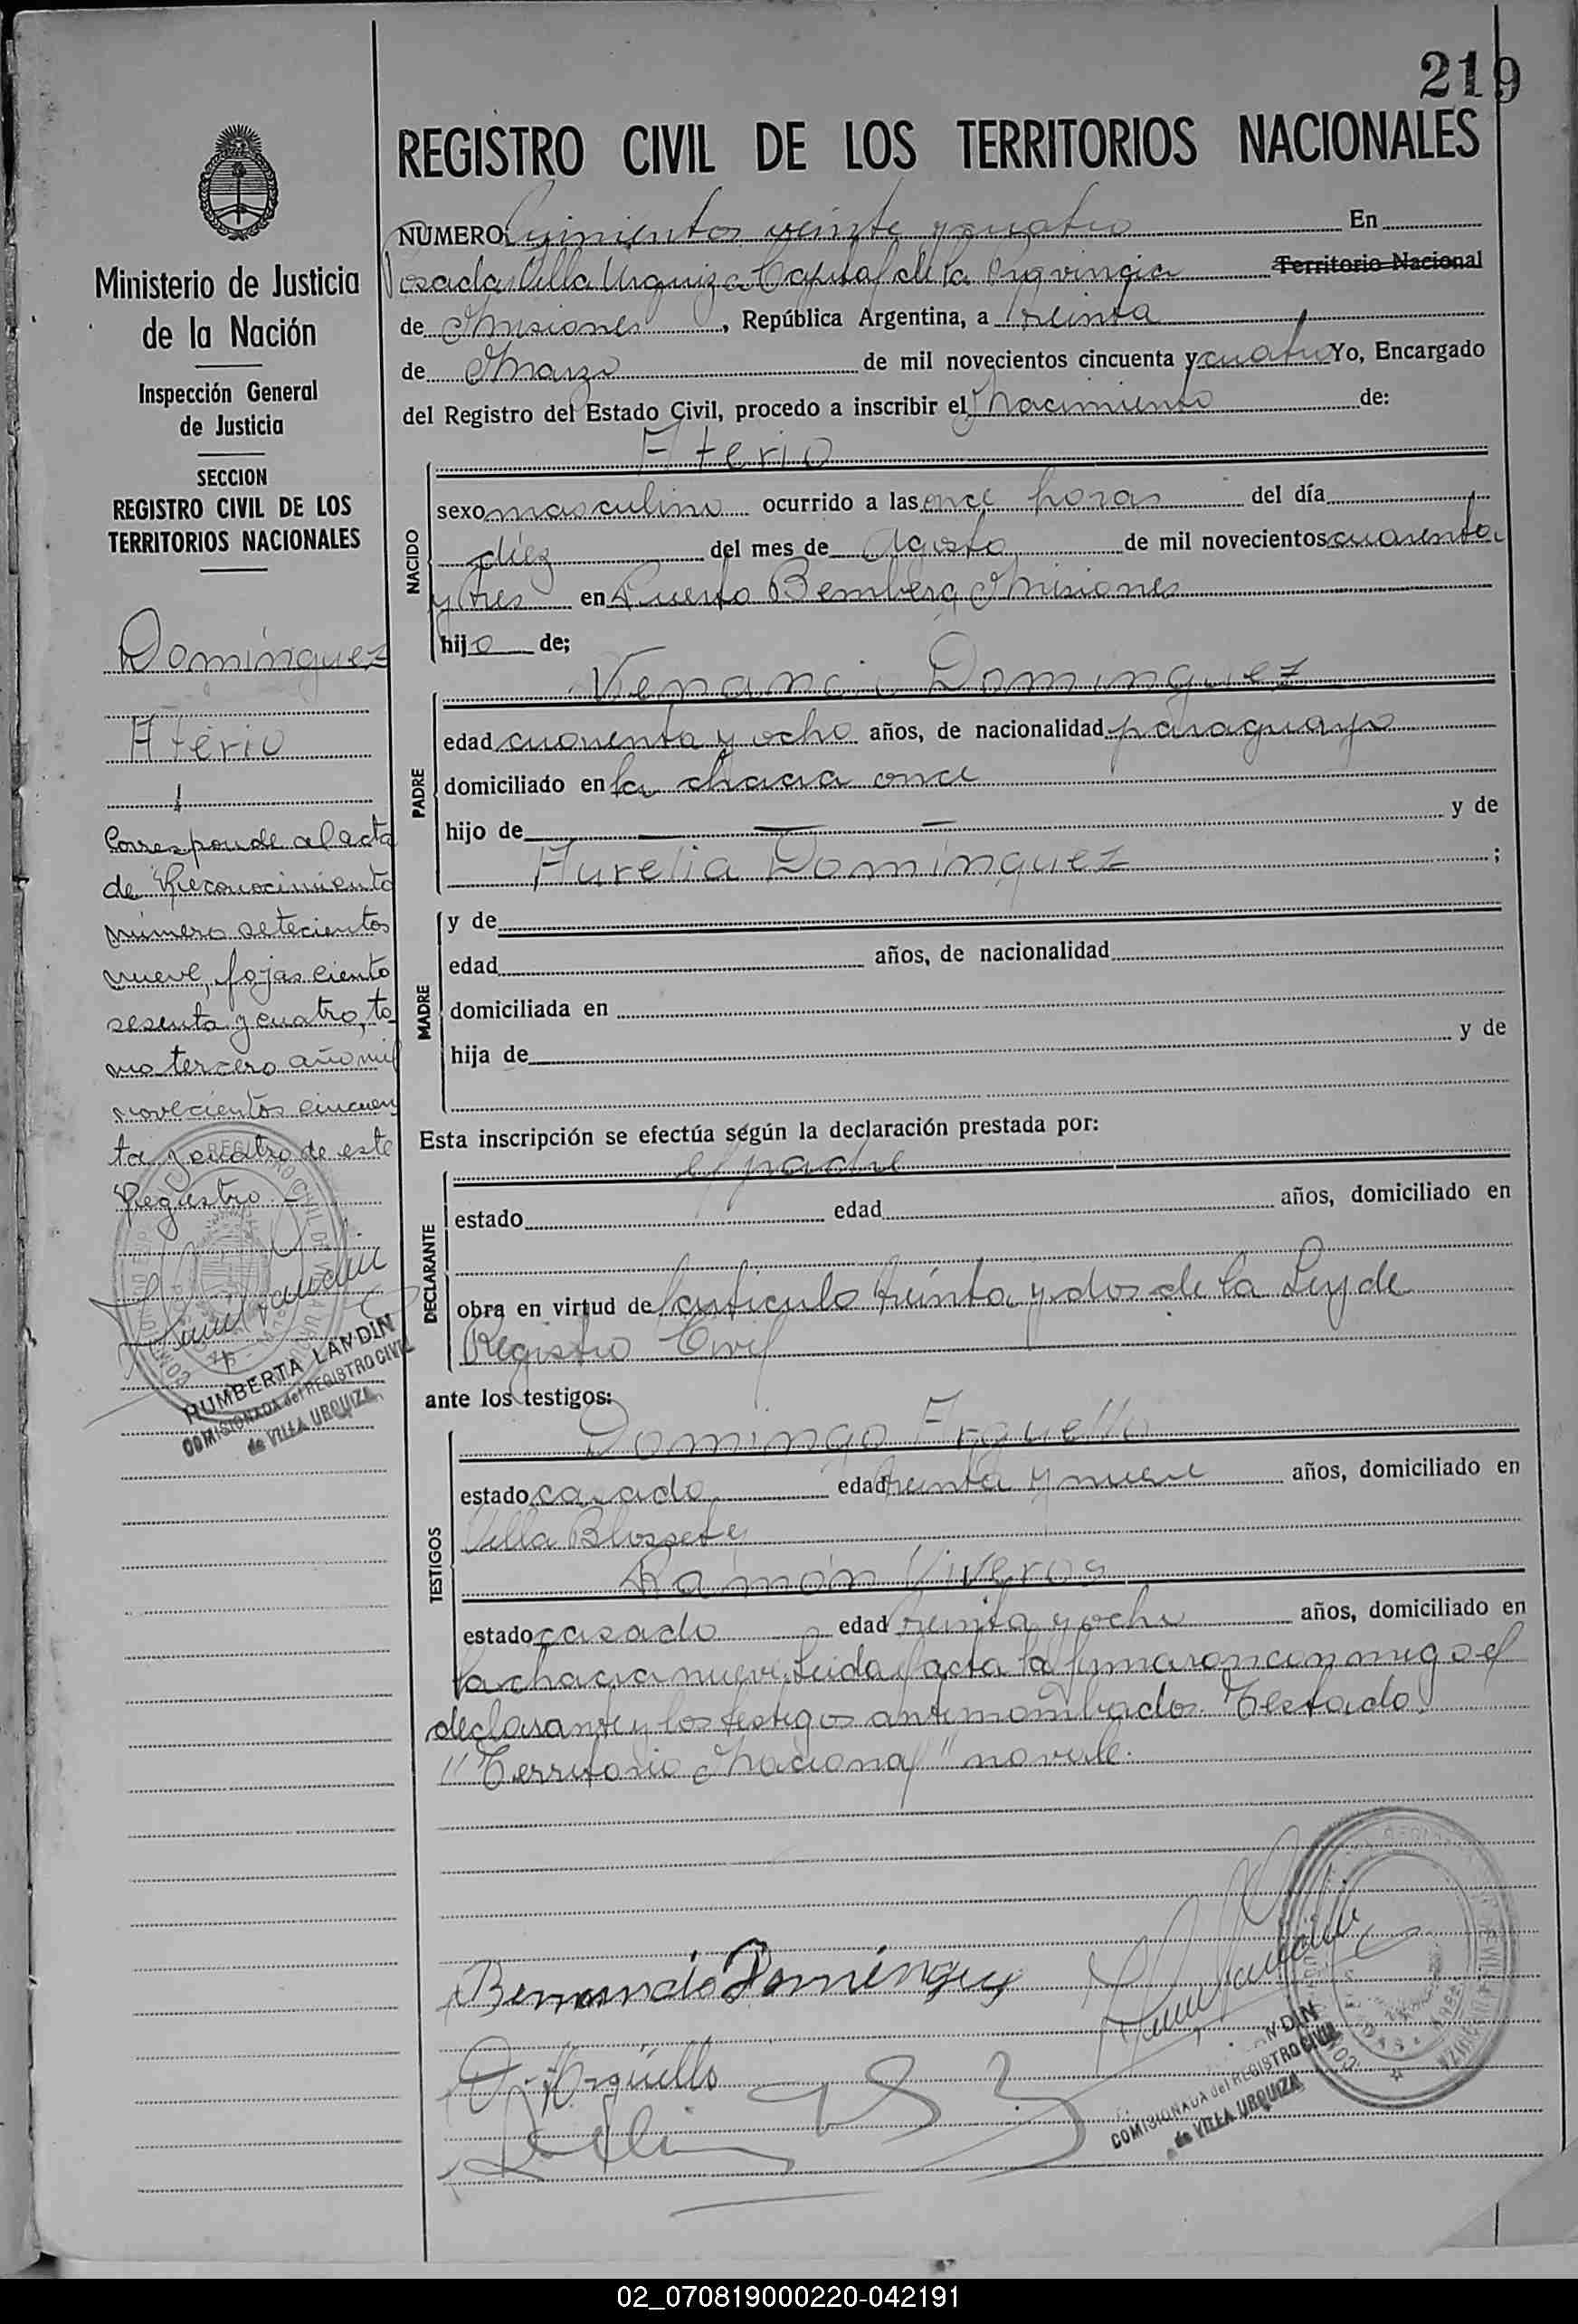 219
REGISTRO CIVIL DE LOS TERRITORIOS NACIONALES
Ministerio de Justicia
de la Nación
Inspección General
de Justicia
SECCION
REGISTRO CIVIL DE LOS
TERRITORIOS NACIONALES
Domínguez
Aterio
Corresponde al acta
de Reconocimiento
número setecientos
nueve, fojas ciento
sesenta y cuatro, to
mo tercero año mil
novecientos cincuen
ta y cuatro de este
Registro
HUMBERTA LANDIN
COMISIONADA del REGISTRO CIVIL
de VILLA URQUIZA
NUMERO Quinientos veinte y cuatro En
Posadas Villa Urquiza Capital de la Provincia Territorio Nacional
de Misiones, República Argentina, a treinta
de Marzo de mil novecientos cincuenta y cuatro Yo, Encargado
del Registro del Estado Civil, procedo a inscribir el Nacimiento de:
NACIDO
Aterio
sexo masculino ocurrido a las once horas del día
diez del mes de Agosto de mil novecientos cuarenta
y tres en Puerto Bemberg Misiones
hijo de;
PADRE
Venancio Domínguez
edad cuarenta y ocho años, de nacionalidad paraguayo
domiciliado en la chacra once
hijo de y de
Aurelia Domínguez ;
MADRE
y de
edad años, de nacionalidad
domiciliada en
hija de y de
Esta inscripción se efectúa según la declaración prestada por:
DECLARANTE
el padre
estado edad años, domiciliado en
obra en virtud del artículo treinta y dos de la Ley de
Registro Civil
ante los testigos:
TESTIGOS
Domingo Arguello
estado casado edad treinta y nueve años, domiciliado en
Villa Blossety
Ramón Viveros
estado casado edad treinta y ocho años, domiciliado en
la chacra nueve. Leida el acta la firmaron conmigo el
declarante y los testigos antenombrados. Testado
"Territorio Nacional" no vale.
Benancio Domínguez
D. Argüello
COMISIONADA del REGISTRO CIVIL
de VILLA URQUIZA
02_070819000220-042191